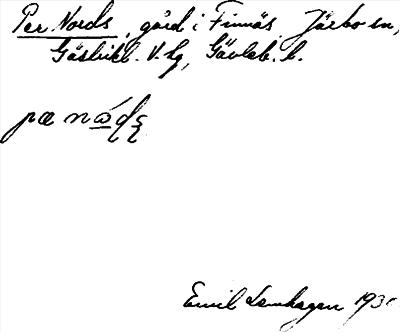 Per Nords, gård i Finnäs Järbo sn,
Gästrikl. V. hg, Gävleb. l.
pæ nådę
Emil Lenhagen 193